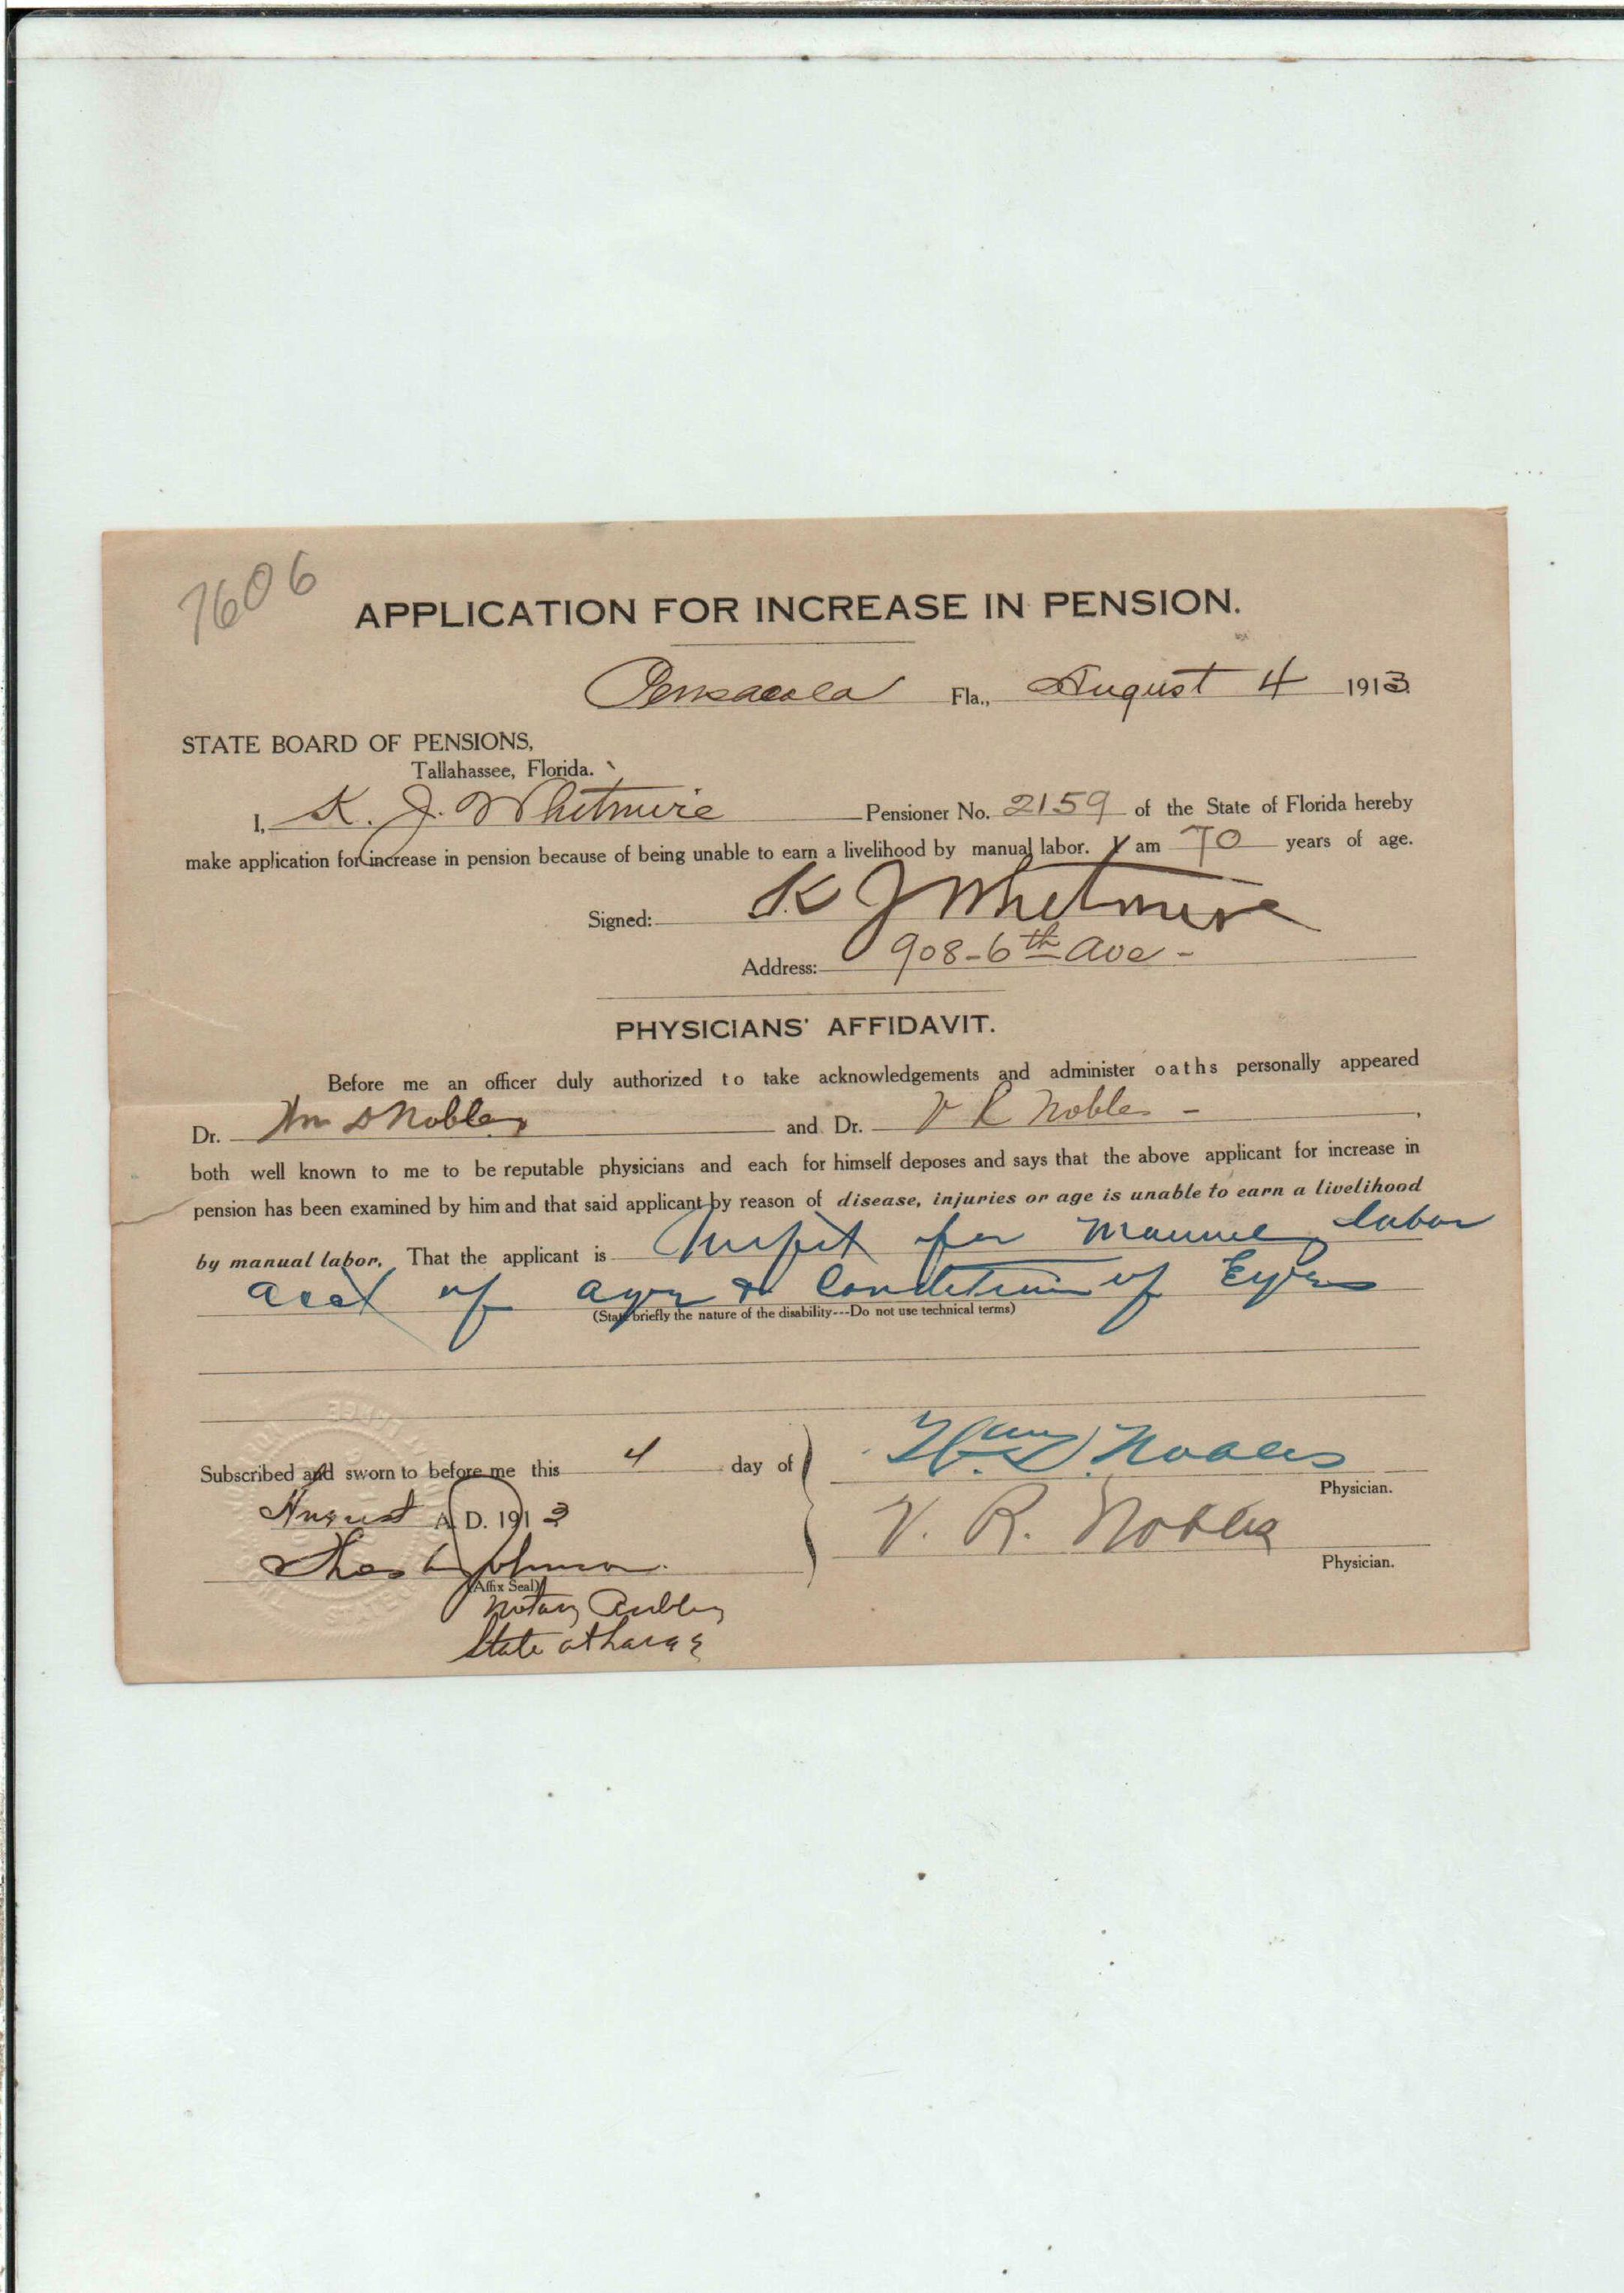 7606
APPLICATION FOR INCREASE IN PENSION.
Pensacola Fla., August 4 1913.
STATE BOARD OF PENSIONS,
Tallahassee, Florida.
I, K. J. Whitmire Pensioner No. 2159 of the State of Florida hereby
make application for increase in pension because of being unable to earn a livelihood by manual labor. I am 70 years of age.
Signed: K J Whitmire
Address: 908-6th Ave -
PHYSICIANS' AFFIDAVIT.
Before me an officer duly authorized to take acknowledgements and administer oaths personally appeared
Dr. Wm D Nobles and Dr. V R Nobles -
both well known to me to be reputable physicians and each for himself deposes and says that the above applicant for increase in
pension has been examined by him and that said applicant by reason of disease, injuries or age is unable to earn a livelihood
by manual labor. That the applicant is Unfit for labor
acct of & Condition of Eyes
(State briefly the nature of the disability---Do not use technical terms)
Subscribed and sworn to before me this 4 day of
Wm. D. Nobles
Physician.
August A. D. 1913
V. R. Nobles
Physician.
Johnson.
(Affix Seal)
Notary Public
State at Large